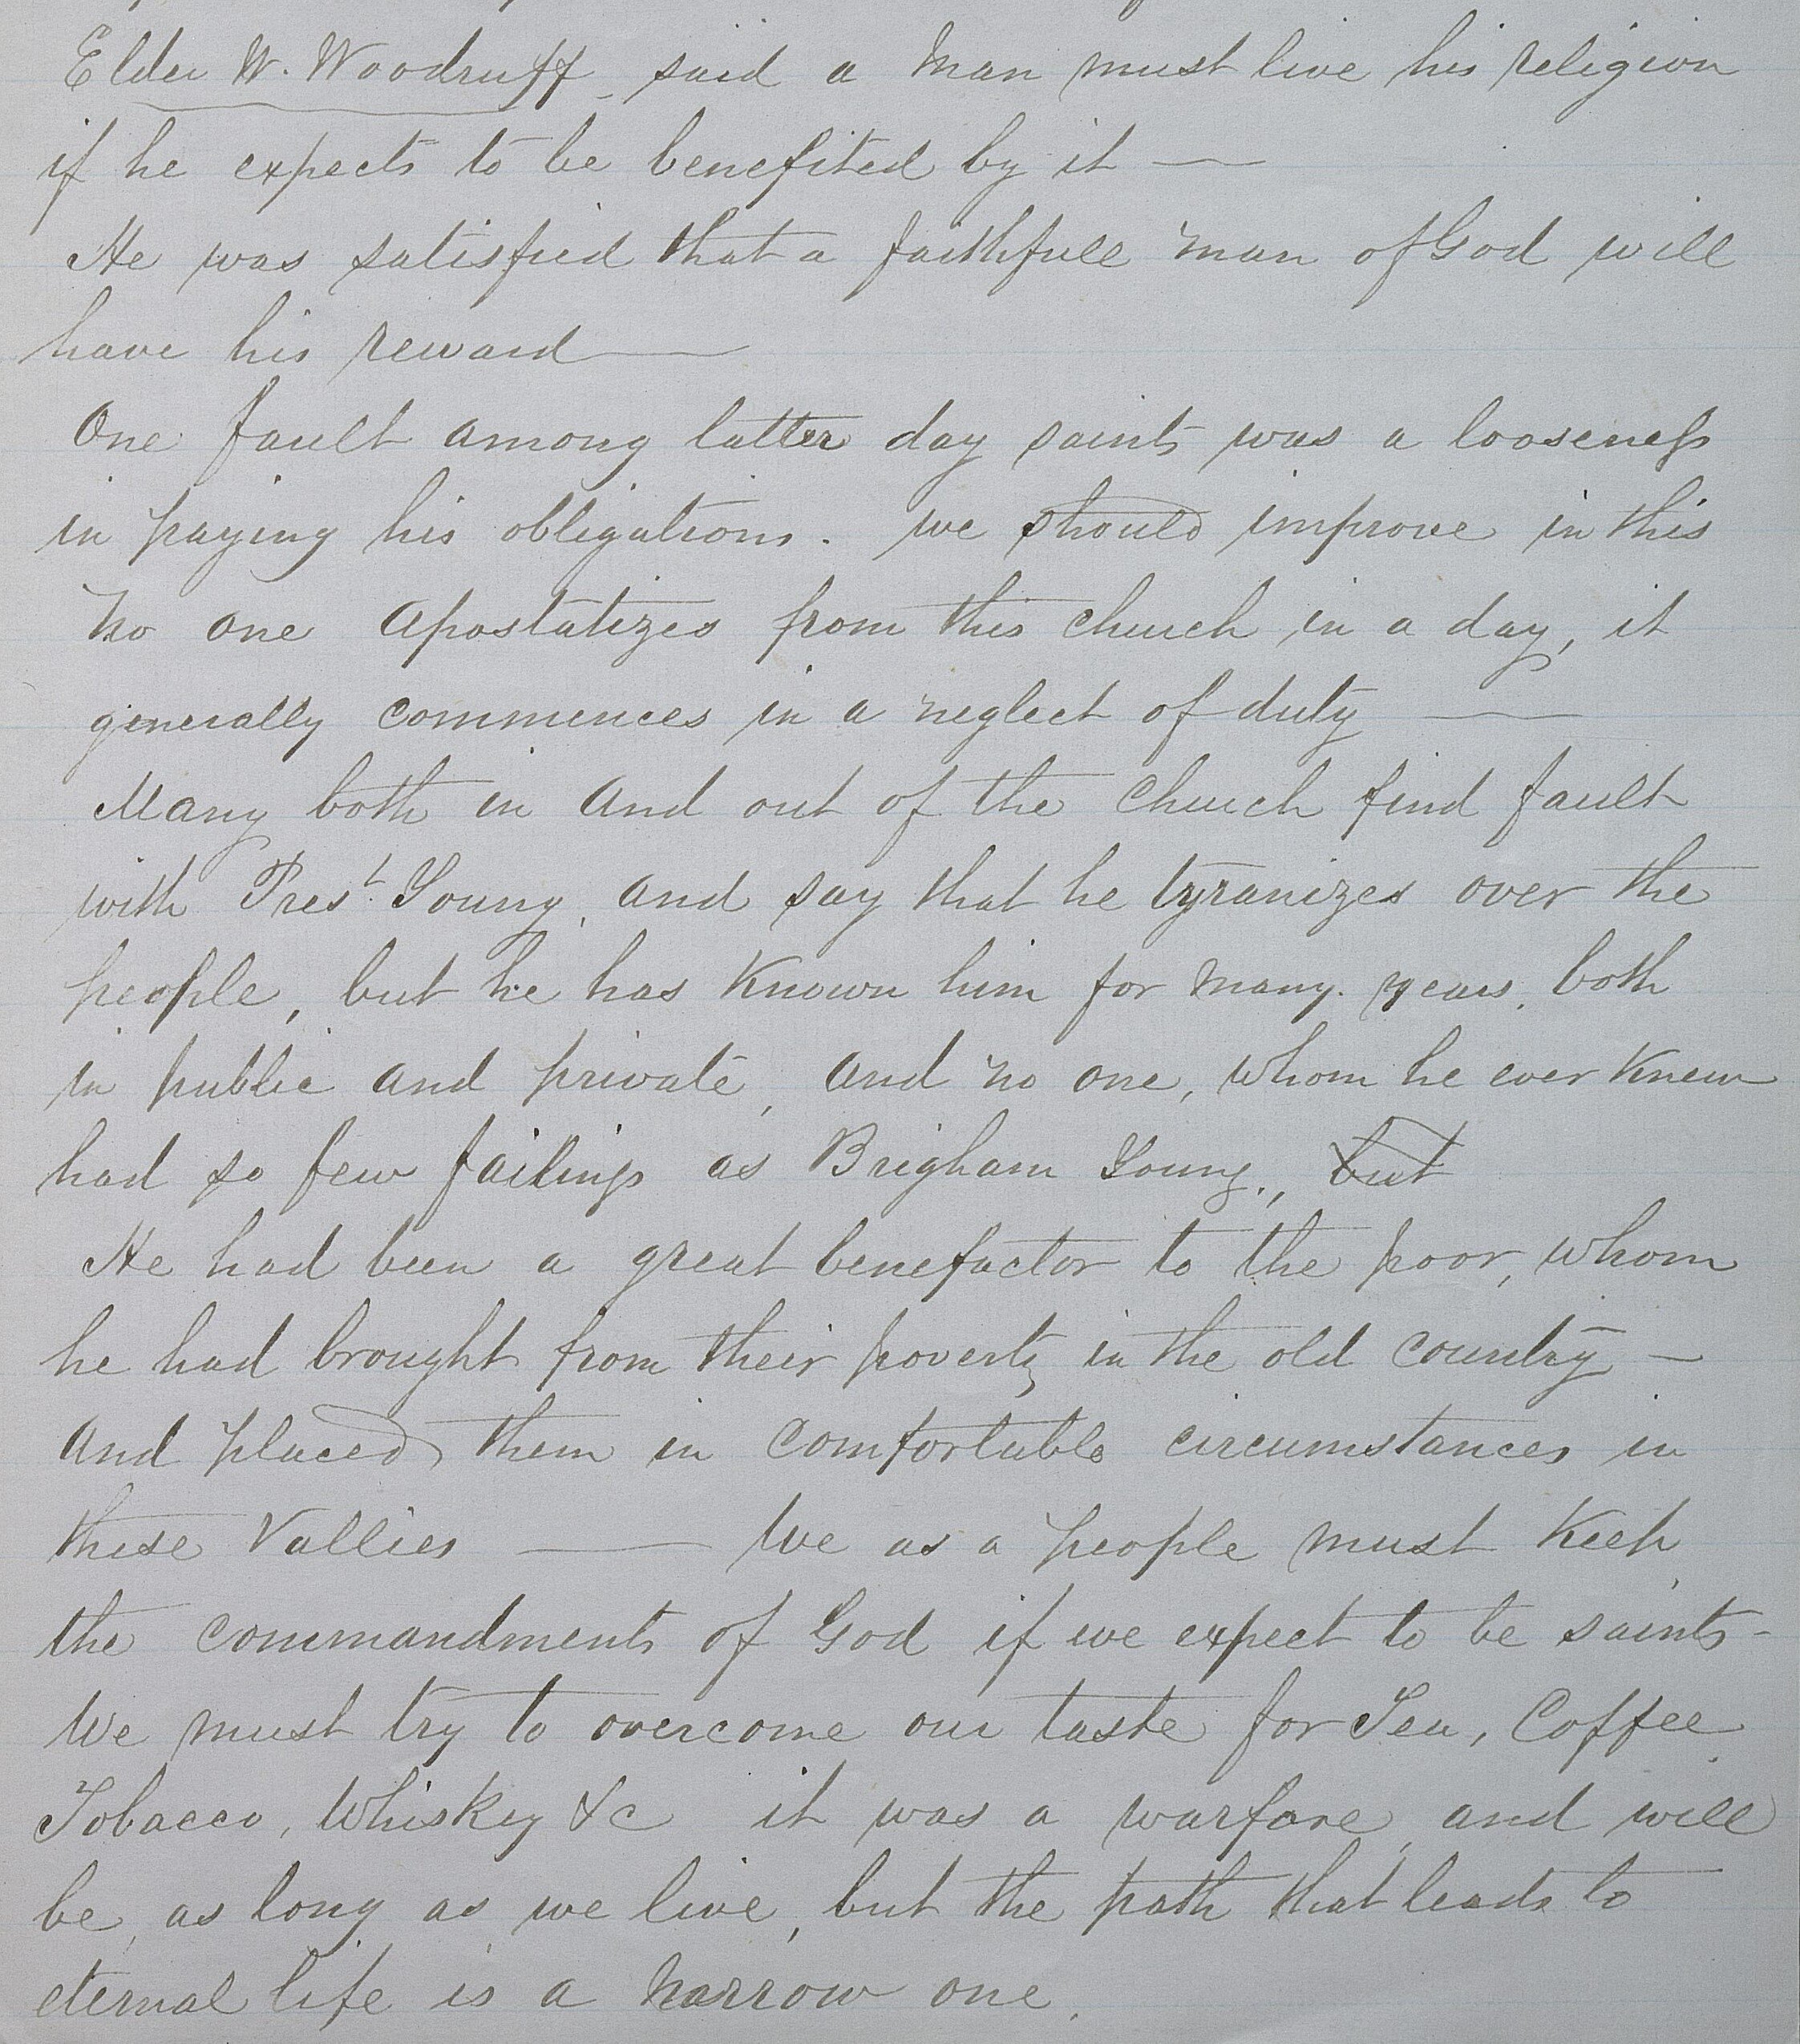 Elder W. Woodruff said a man must live his religion
if he expects to be benefited by it —
He was satisfied that a faithfull man of God will
have his reward —
One fault among latter day saints was a looseness
in paying his obligations. we should improve in this
No one apostatizes from this church in a day, it
generally commences in a neglect of duty —
Many both in and out of the church find fault
with Prest. Young, and say that he tyranizes over the
people, but he has known him for many years, both
in public and private, and no one, whom he ever knew
had so few failings as Brigham Young., but
He had been a great benefactor to the poor, whom
he had brought from their poverty in the old country —
and placed them in comfortable circumstances in
these Vallies — We as a people must keep
the commandments of God if we expect to be saints -
We must try to overcome our taste for Tea, Coffee,
Tobacco, Whiskey &c it was a warfare, and will
be, as long as we live, but the path that leads to
eternal life is a narrow one.